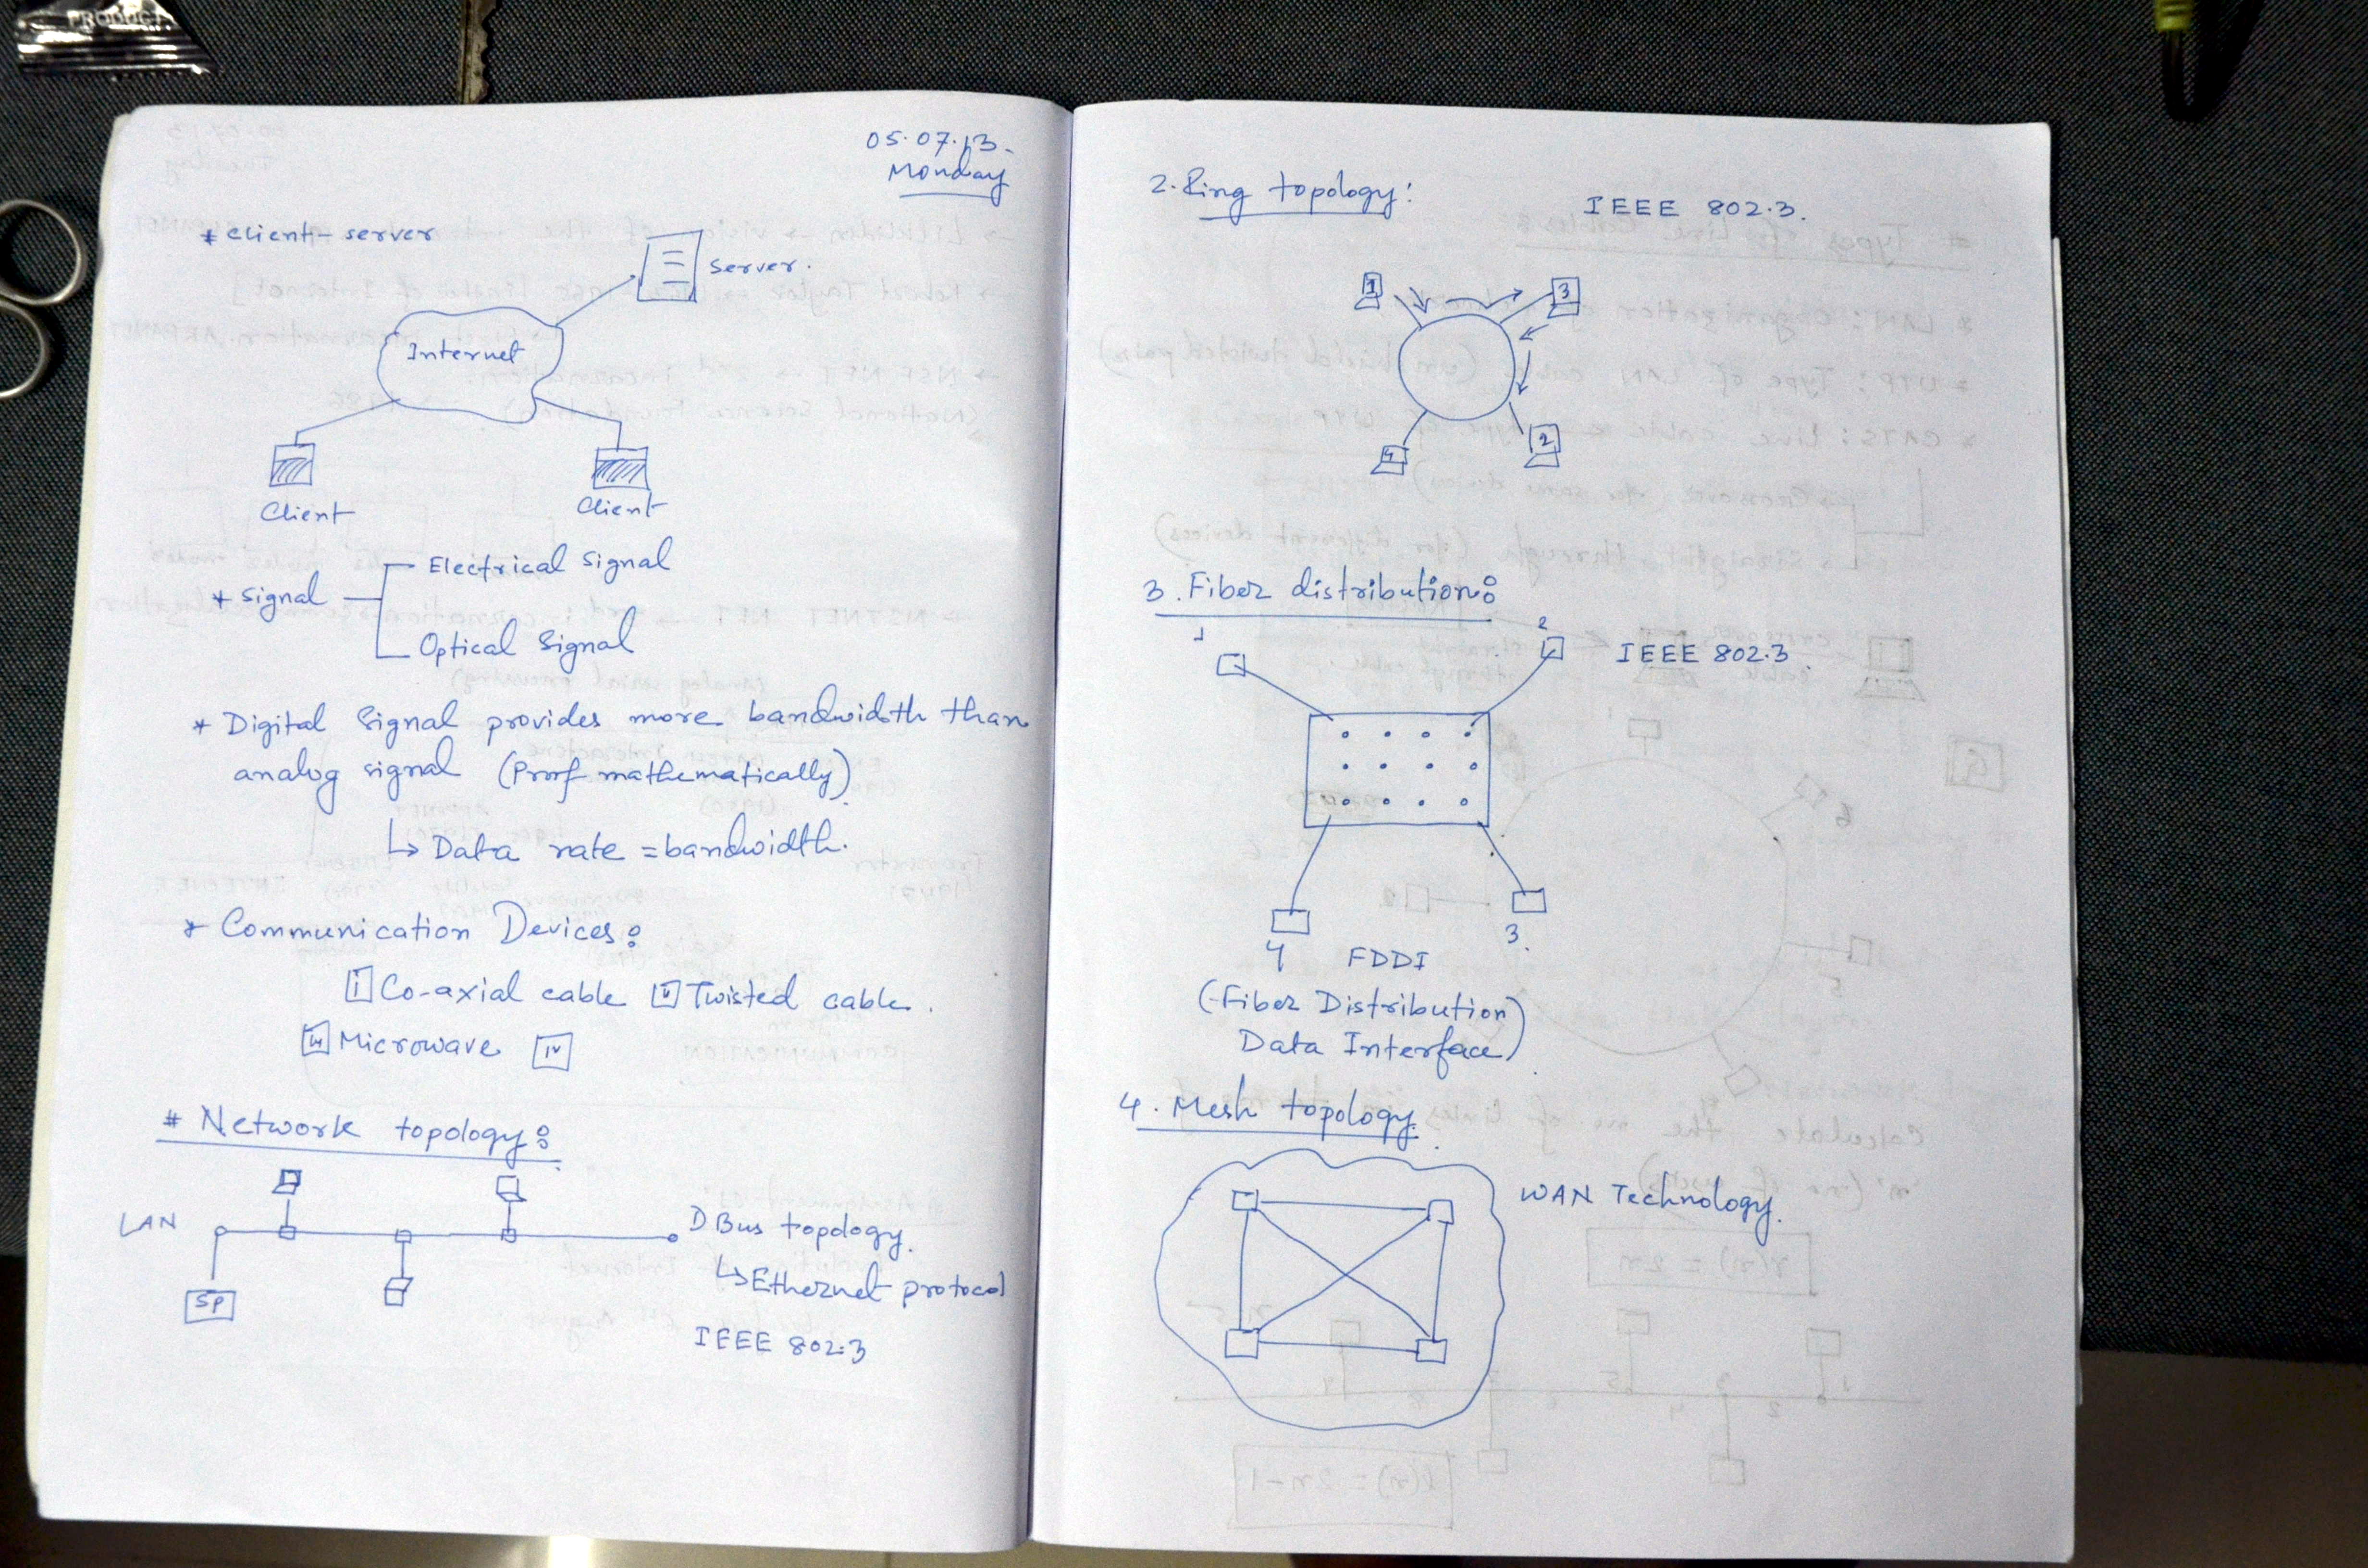 PRODUCT
05.07.13.
Monday
* Client-server
Server.
Internet
Client
Client
* Signal
Electrical Signal
Optical Signal
* Digital Signal provides more bandwidth than
analog signal (Proof mathematically).
↳ Data rate = bandwidth.
* Communication Devices:
i Co-axial cable ii Twisted cable.
iii Microwave iv
# Network topology:
LAN
SP
1) Bus topology.
↳ Ethernet protocol
IEEE 802.3
2. Ring topology:
IEEE 802.3.
1
3
4
2
3. Fiber distribution:
1
2
IEEE 802.3.
4
3.
FDDI
(Fiber Distribution
Data Interface)
4. Mesh topology.
WAN Technology.